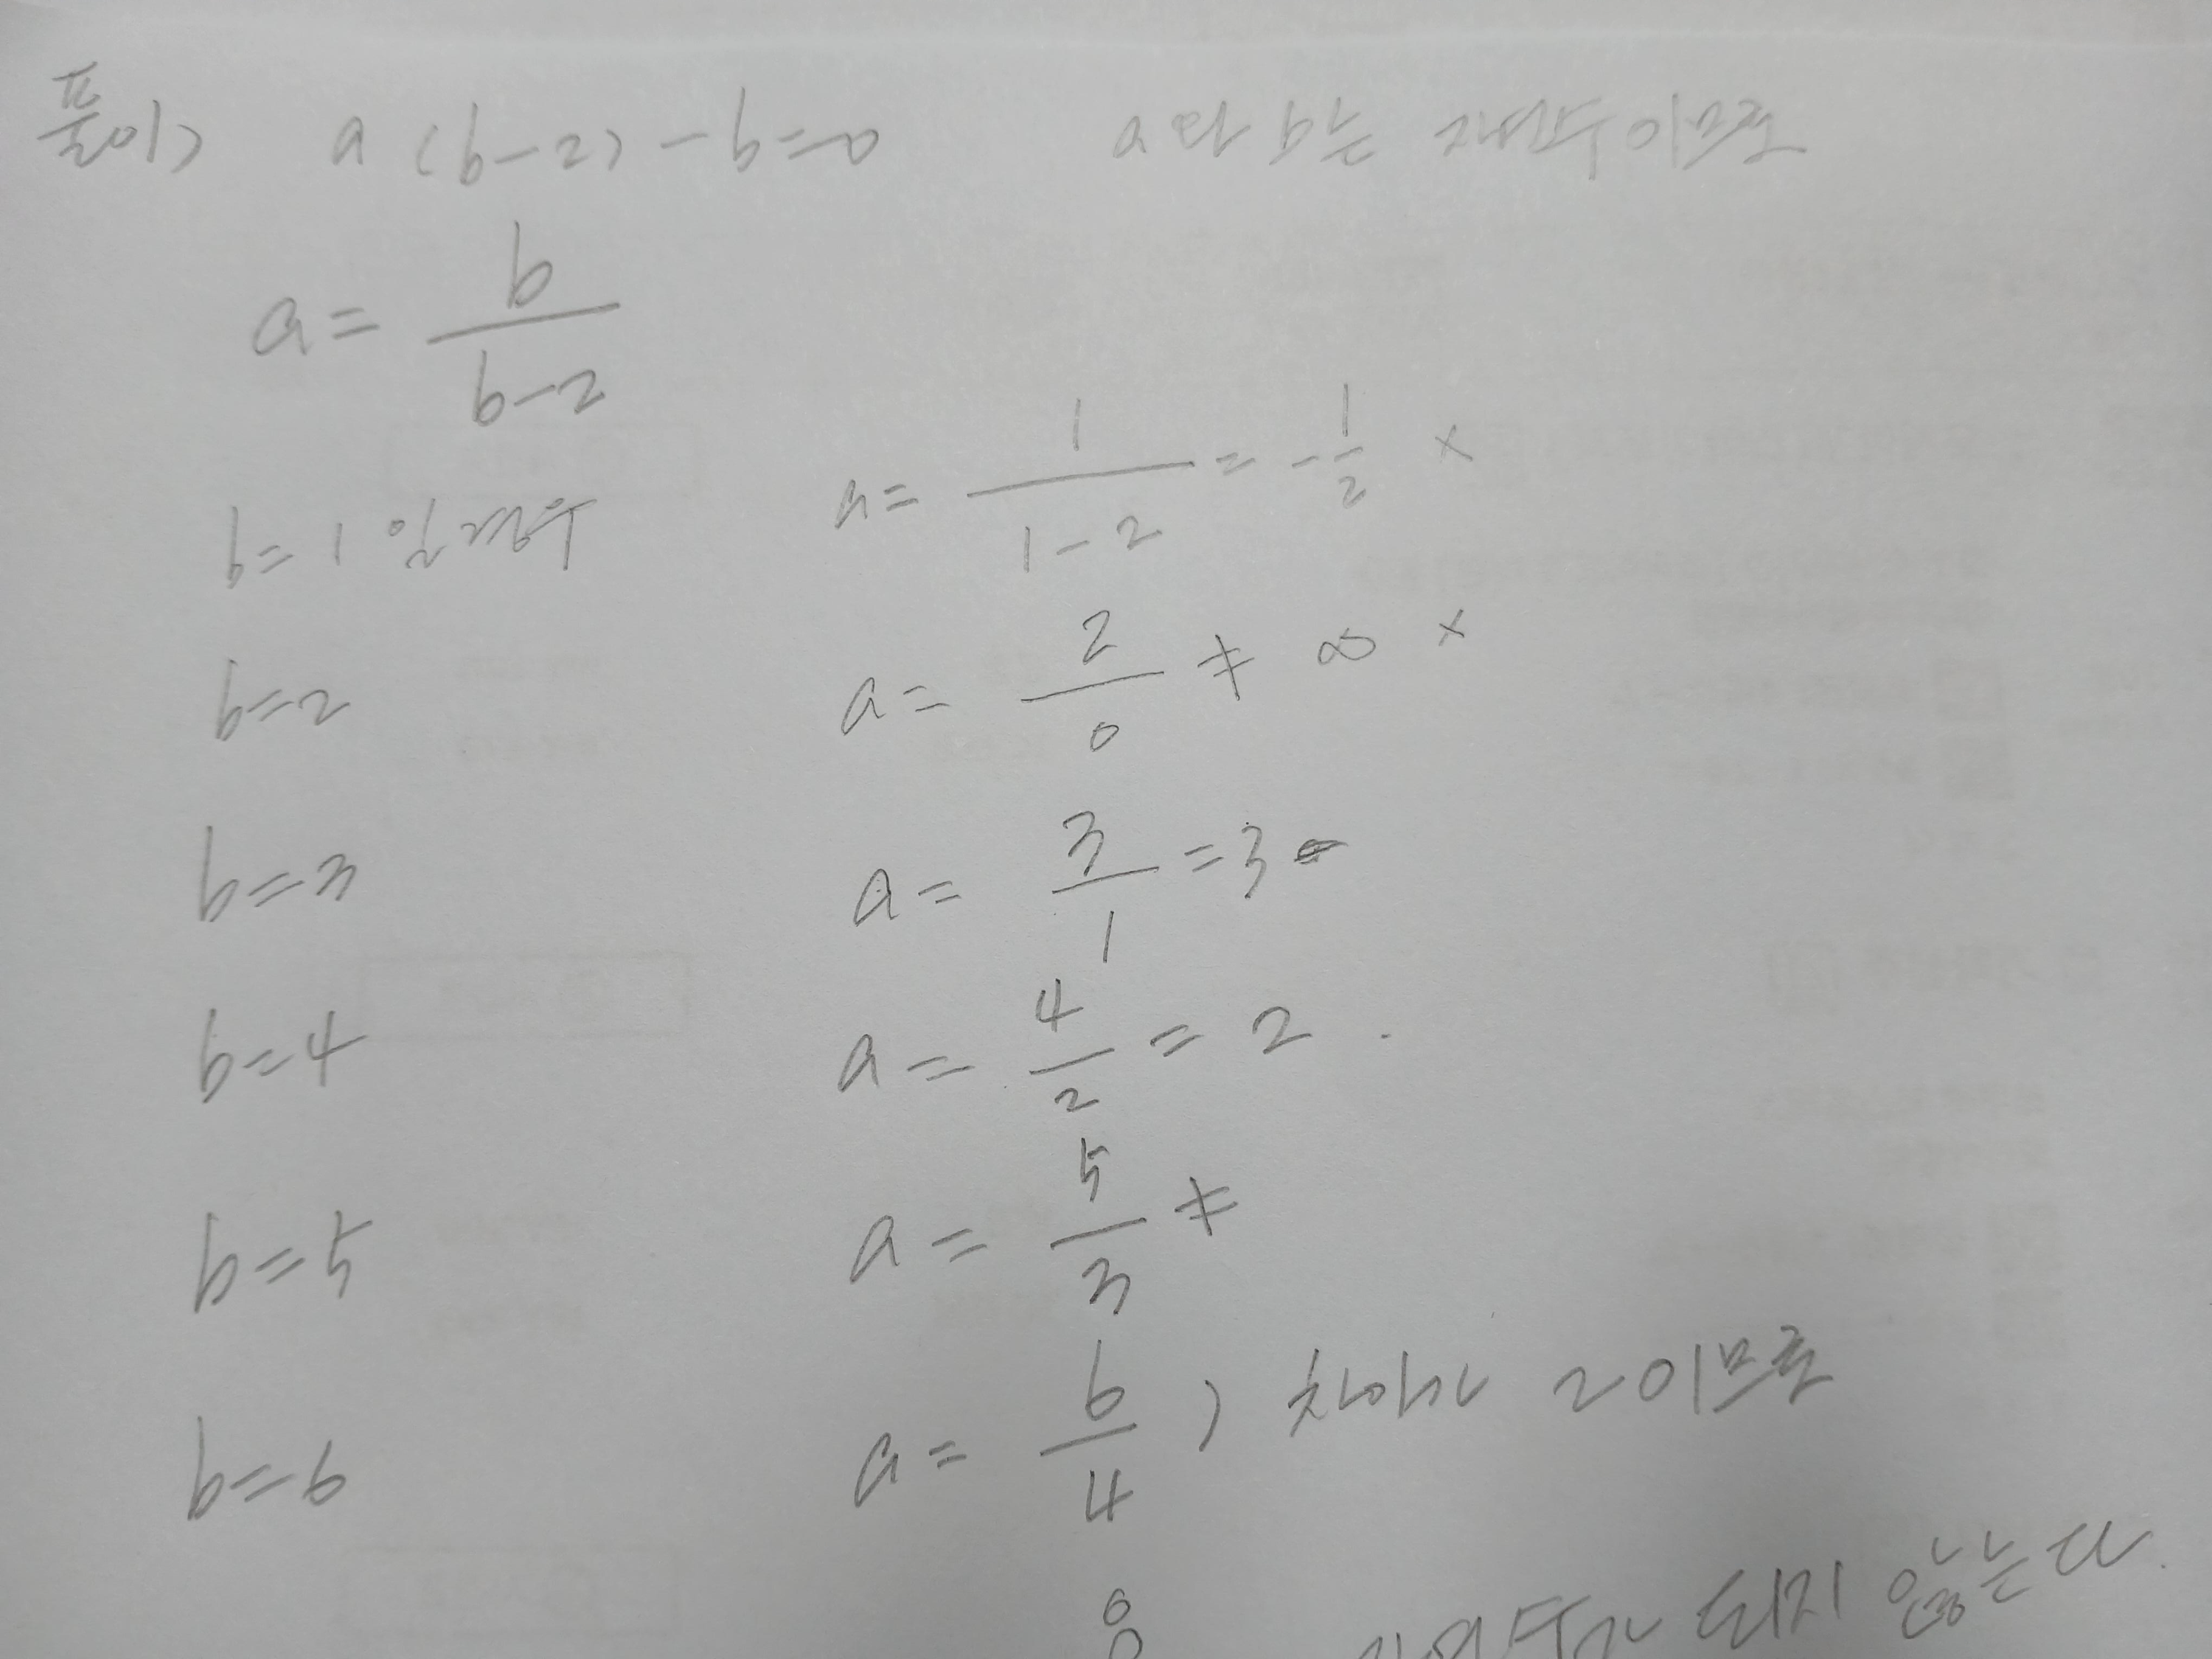 풀이) a(b-2)-b=0 a와 b는 자연수 이므로
a = b/(b-2)
b=1 일 경우 a = 1/(1-2) = -1/2 ×
b=2 a = 2/0 ≠ ∞ ×
b=3 a = 3/1 = 3
b=4 a = 4/2 = 2 .
b=5 a = 5/3 ≠
b=6 a = 6/4 , 차이가 2 이므로
되지 않는다.